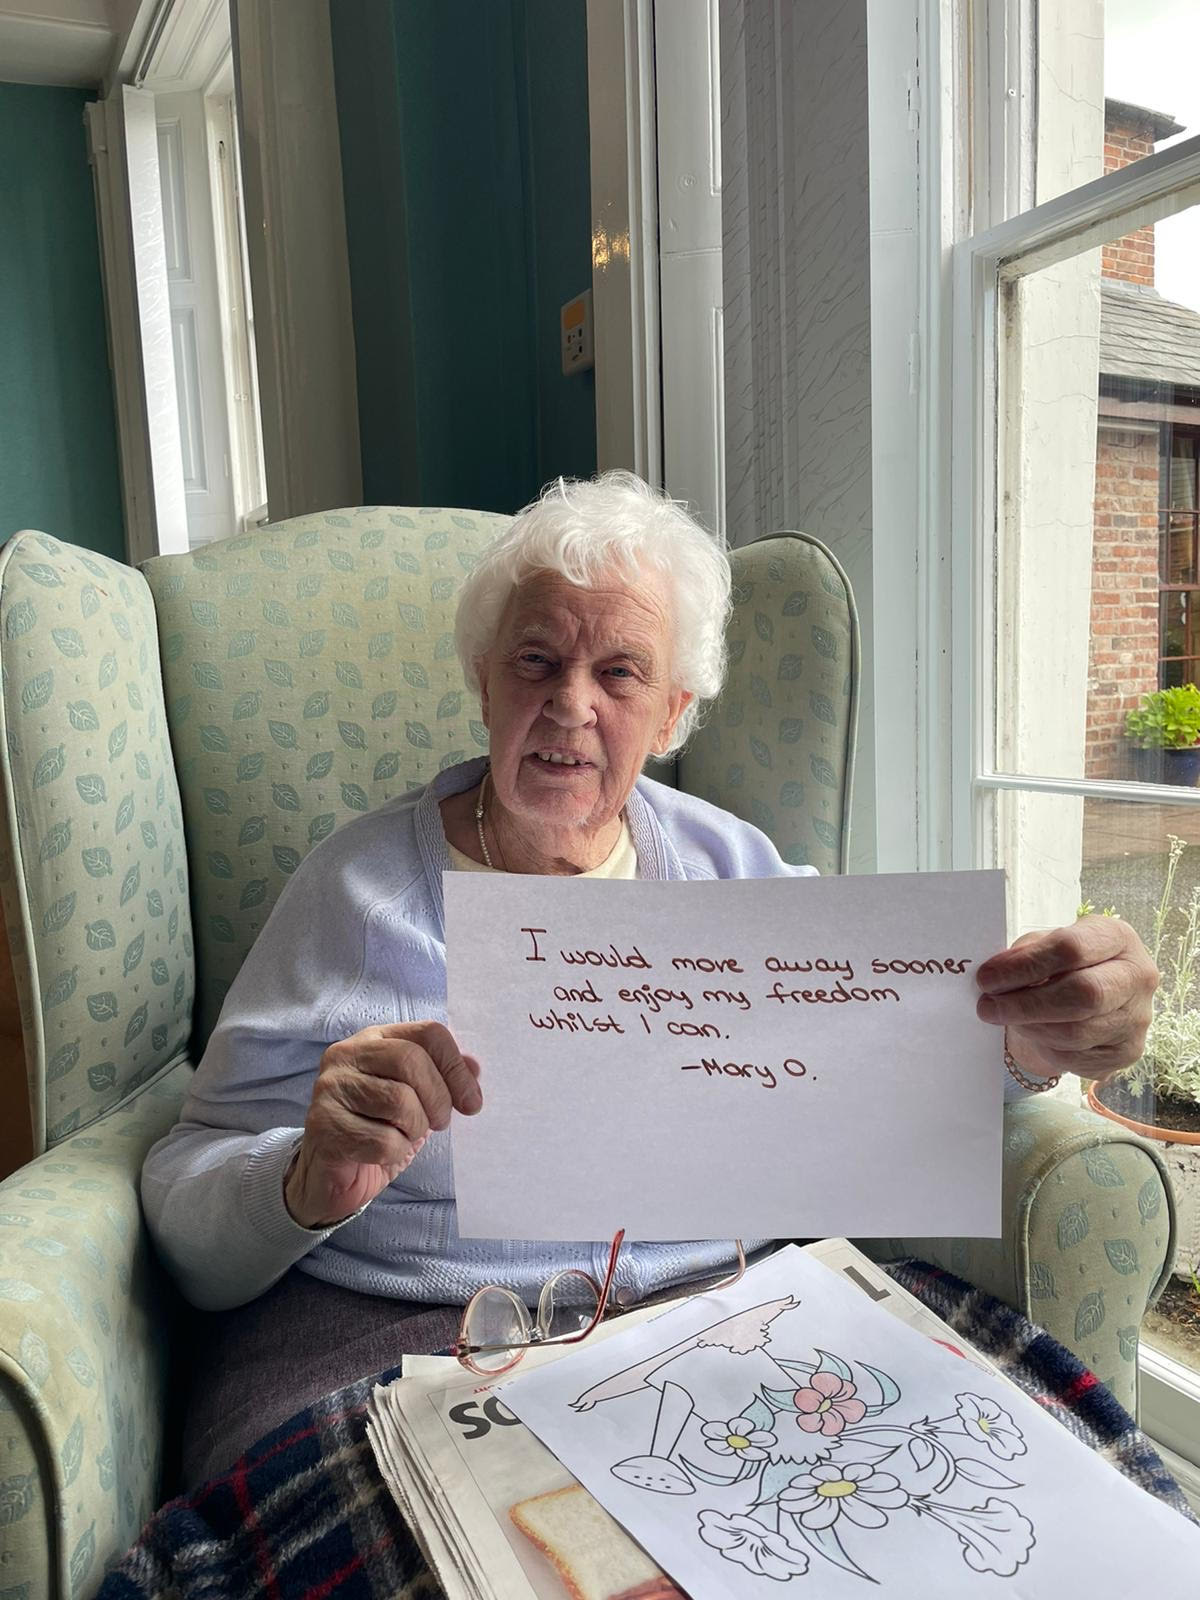 I would move away sooner
and enjoy my freedom
whilst I can.
-Mary O.
SO
L